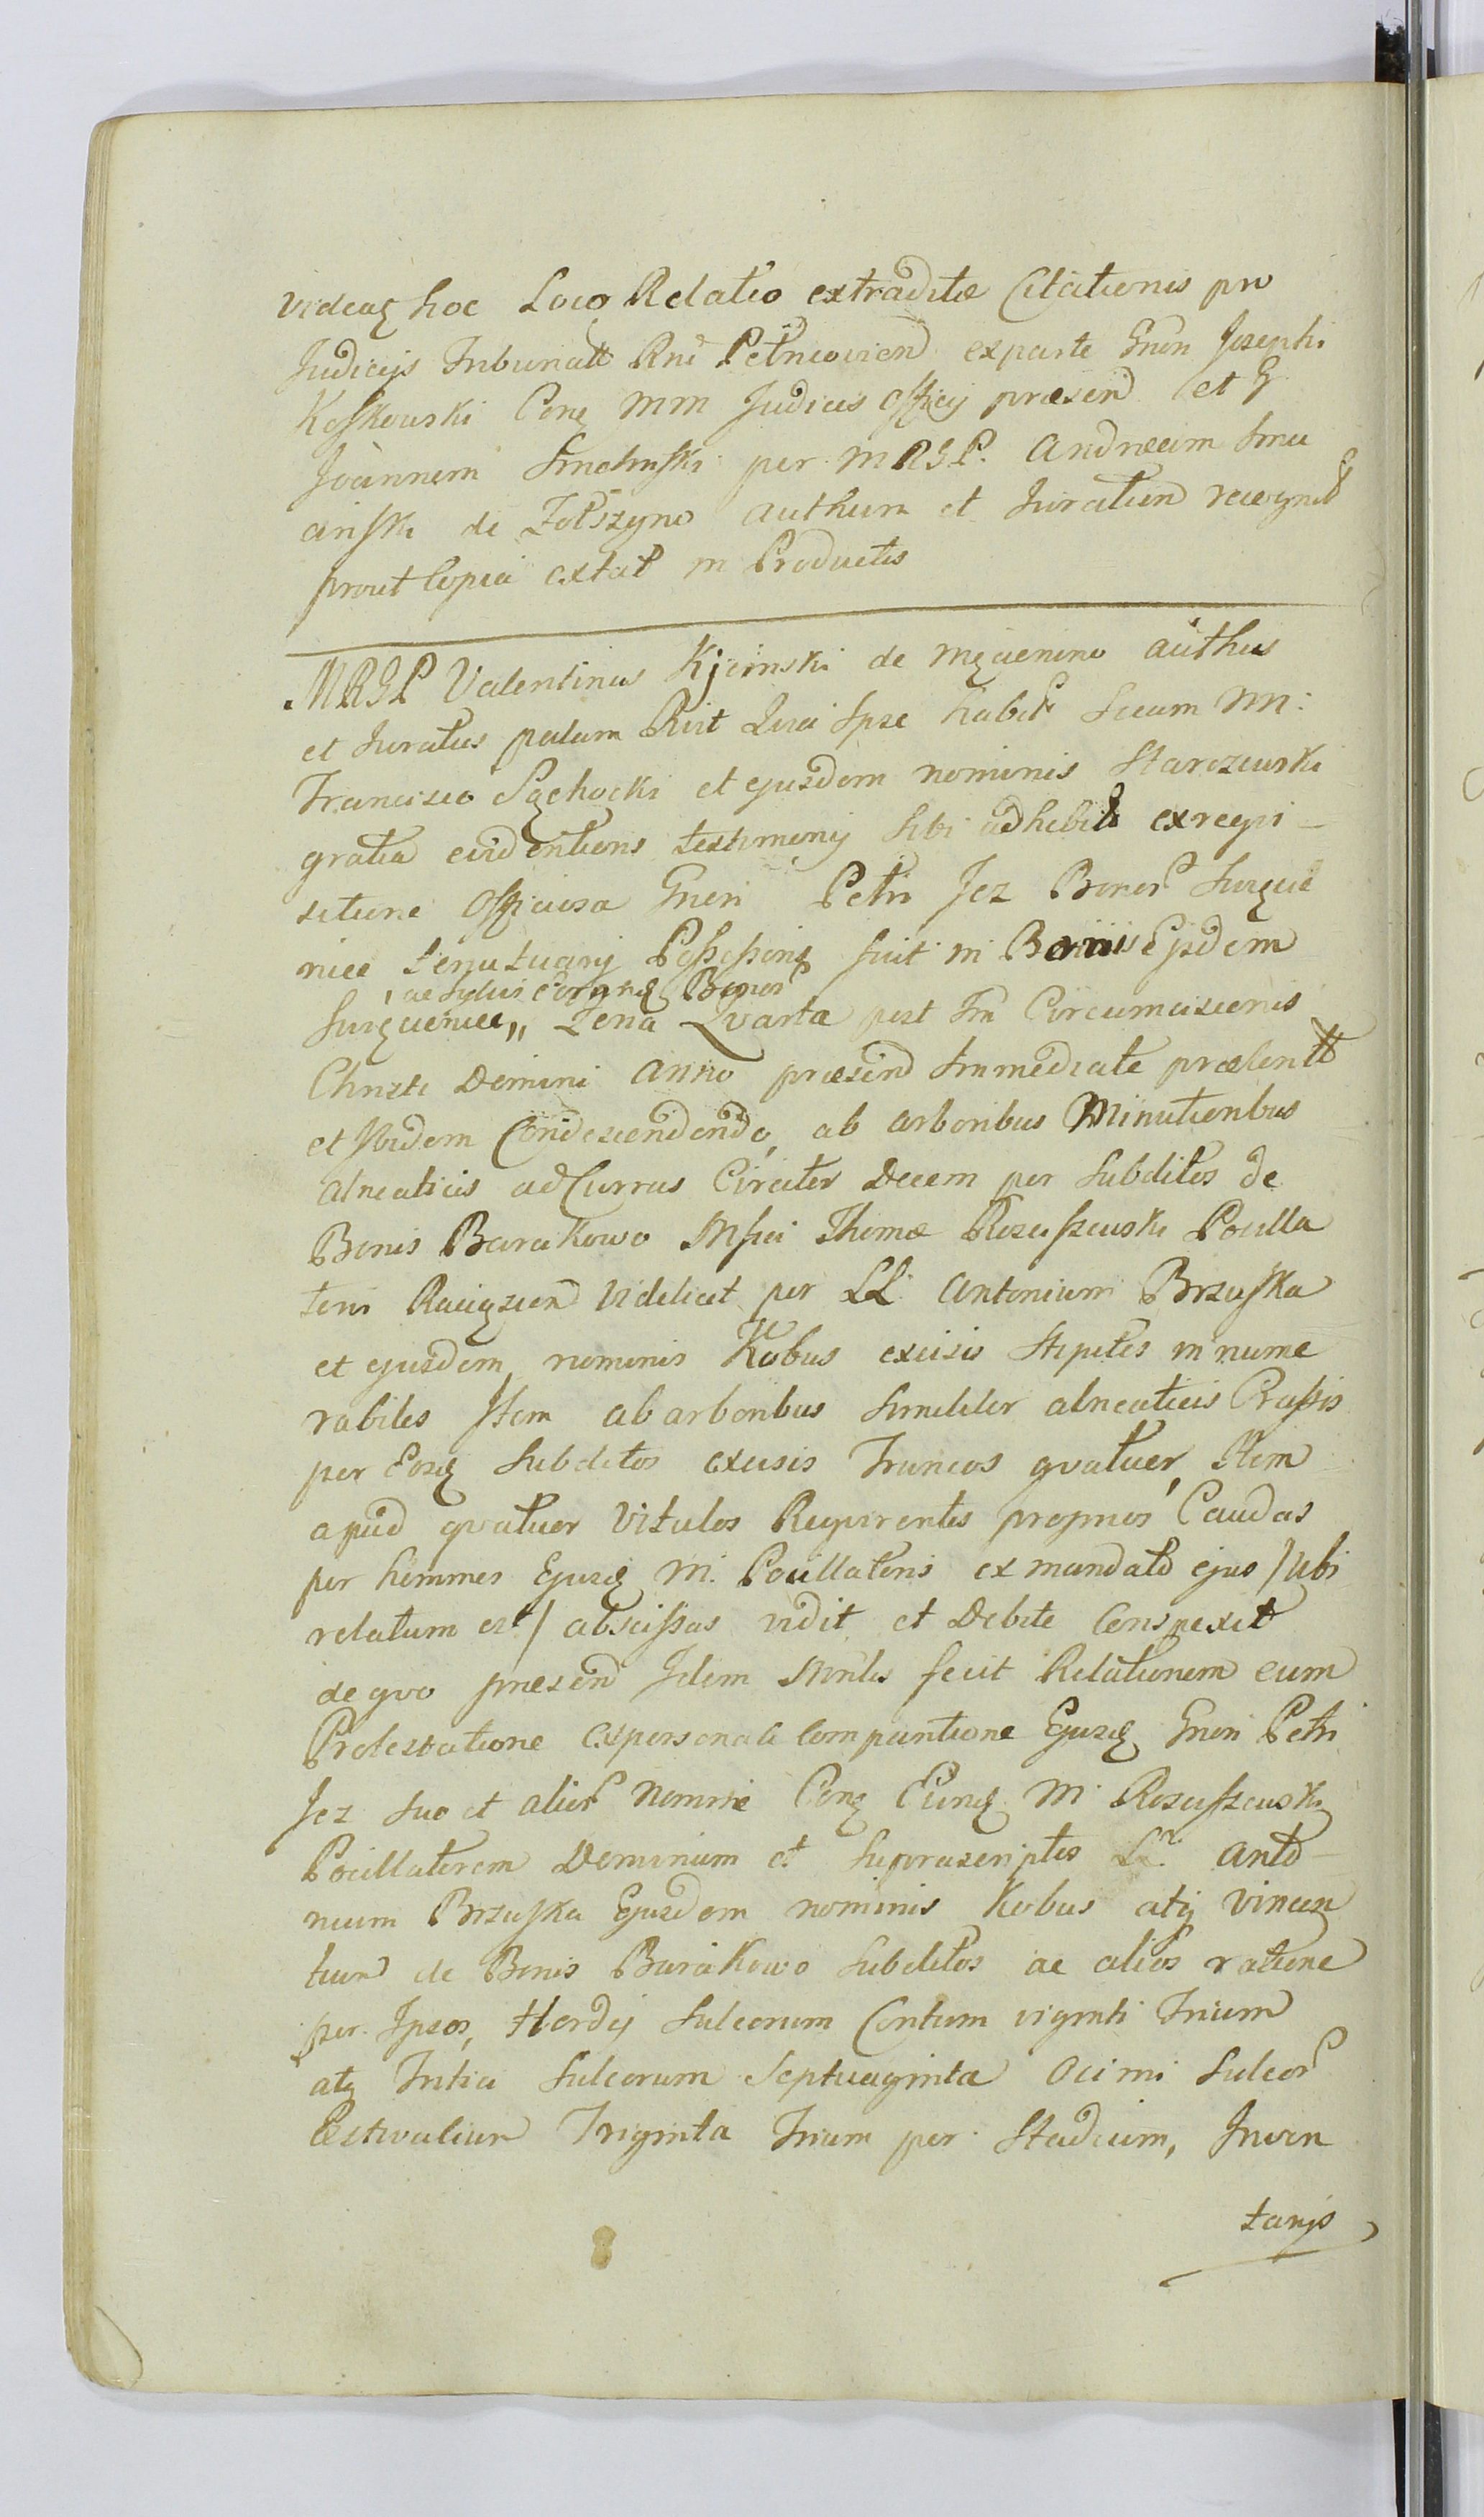 videaꝫ hoc Loco Relatio extraditæ Citationis pro
Judicijs Tribunałł Rnī Petricovien exparte Gnēn Josephi
Koskowski Conꝫ Mm Judicis Officij præsen et G
Joannem per MRGP. Andream Smu
ański de authum et Juratum recognit
prout Copia extat in Productis
MRGP Valentinus de authus
et Juratus palam Rcit Quia Ipse habit Secum NN:
Francisco Sąchocki et ejusdem nominis Starczewski
gratia evidentioris testimonij Sibi adhibit exrequi-
sitione Officiosa Gneri Petri Jez Bonor
nice Tenutarij Possessoris fuit in Bonis Ejsdem
ac Sylvis eorundꝫ Bonor
" Feria Quarta post Fm Circumcisionis
Christi Domini Anno præsen Immediate præterit
et Ibidem Condescendendo, ab arboribus Minutioribus
alneaticis ad Currus Circiter Decem per Subditos de
Bonis Barakowo Mſici Thomæ Rozasszewski Pocilla
toris videlicet per LL. Antonium Brzuska
et ejusdem nominis Kobus excisis Stipites innume
rabiles Item ab arboribus Similiter alneaticis Crassis
per Eosꝫ Subditos excisis Truncos quatuor, Item
apud quatuor Vitulos Requirentis proprios Caudas
per homines Ejusꝫ M. Pocillatoris ex mandato ejus /ubi
relatum est/ abscissas vidit et Debite Conspexit
de quo præsen Idem Mrlis fecit Relationem cum
Protestatione expersonali Comparitione Ejusꝫ Gneri Petri
Jez Suo et alior Nomine Conꝫ Eunꝫ M. Rozasszewski
Pocillatorem Dominum et Suprascriptos LL. Anto-
nium Brzuska Ejusdem nominis Kobus atq Vincen
tium de Bonis Barakowo Subditos ac alios ratione
per Ipsos, Hordej Sulcorum Centum viginti Trium
atꝫ Tritici Sulcorum Septuaginta Ocimi Sulcor
Æstivalium Triginta Trium per Stadium, Inven
tarijs